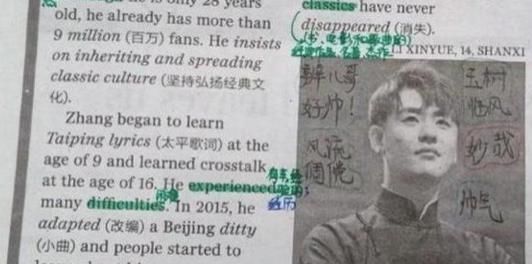 is only 28 years
old, he already has more than
9 million (百万) fans. He insists
on inheriting and spreading
classic culture (坚持弘扬经典文
化).
Zhang began to learn
Taiping lyrics (太平歌词) at the
age of 9 and learned crosstalk
at the age of 16. He experienced
many difficulties. In 2015, he
adapted (改编) a Beijing ditty
(小曲) and people started to
经历
困难
classics have never
disappeared (消失).
LI XINYUE, 14, SHANXI
辫儿哥
好帅!
风流
倜傥
玉树
临风
妙哉
帅气